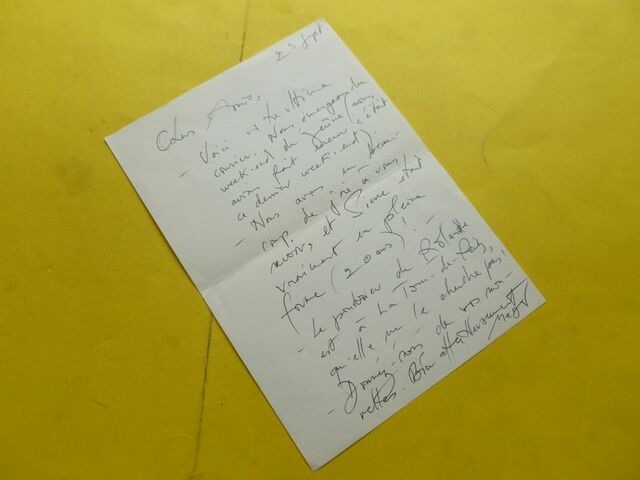 23 Sept
Chers Amis,
- Voici un ultime
courrier. Nous émergeons du
week-end du Jeûne (nous
avions fait erreur c'était
ce dernier week-end)!
- Nous avons eu beau-
coup de joie à vous
revoir, et Simone était
vraiment en pleine
forme (20 ans)! -
- Le pardessus de
est à La Tour-de-Peilz,
qu'elle ne le cherche pas!
- Donnez-nous de vos nou-
velles. Bien affectueusement